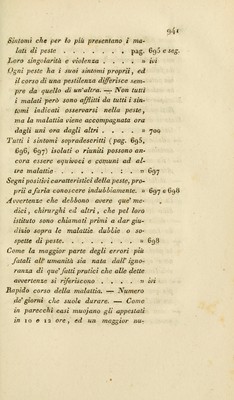 941
Sintomi che per lo più presentano i ma-
lati di peste . . . . . . . pag. 695 e seg.
Loro singolarità e violenza . . . . » ivi
Ogni peste ha i suoi sintomi proprii, ed
il corso di una pestilenza differisce sem-
pre da quello di un'altra. — Non tutti
i malati però sono afflitti da tutti i sin-
tomi indicati osservarsi nella peste,
ma la malattia viene accompagnata ora
dagli uni ora dagli altri . . . . » 700
Tutti i sintomi sopradescritti (pag. 695,
696, 697) isolati o riuniti possono an-
cora essere equivoci e comuni ad al-
tre malattie . . . . . : . » 697
Segni positivi caratteristici della peste, pro-
prii a farla conoscere indubbiamente. » 697 e 698
Avvertenze che debbono avere que' me-
dici, chirurghi ed altri, che pel loro
istituto sono chiamati primi a dar giu-
dizio sopra le malattie dubbie o so-
spette di peste. . . . . . . » 698
Come la maggior parte degli errori più
fatali all'umanità sia nata dall'igno-
ranza di que' fatti pratici che alle dette
avvertenze si riferiscono . . . . » ivi
Rapido corso della malattia. — Numero
de' giorni che suole durare. — Come
in parecchi casi muojano gli appestati
in 10 e 12 ore, ed un maggior nu-